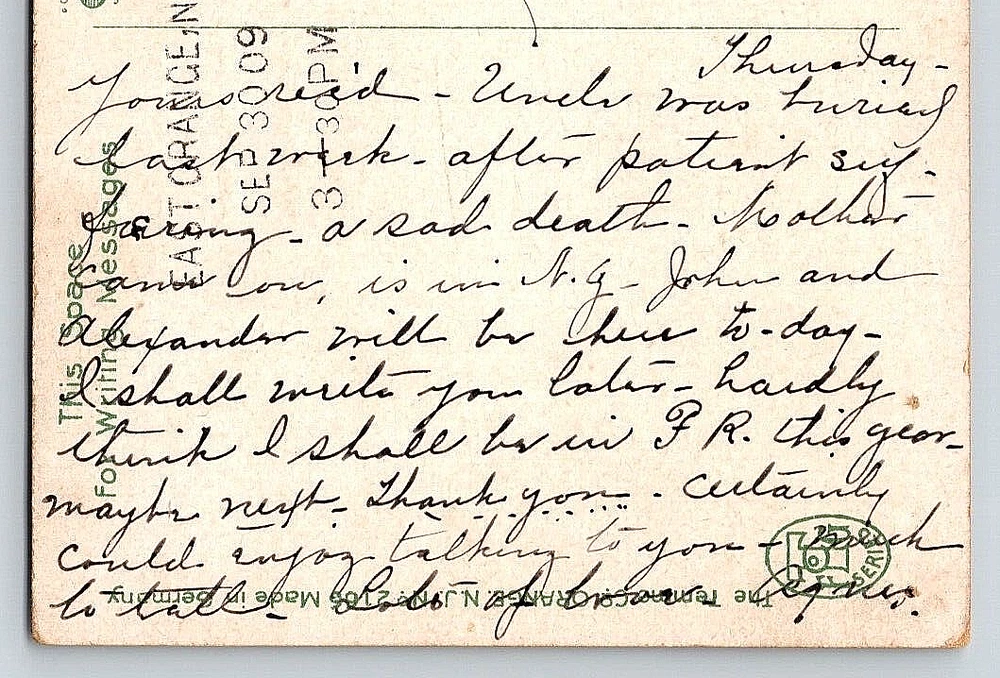 Thursday -
Yours rec'd - Uncle was buried
last week - after patient suf-
fering - a sad death - Mother
came on, is in N.Y - John and
Alexander will be here to-day -
I shall write you later - hardly
think I shall be in F R. this year -
maybe next - Thank you - Certainly
could enjoy talking to you - much
to tell - Lots of love - Agnes.
EAST ORANGE, N
SEP 30 09
3 - 30 PM
This Space
for Writing Messages
The Temme Co. ORANGE N.J. No 2106 Made in Germany
SERIE